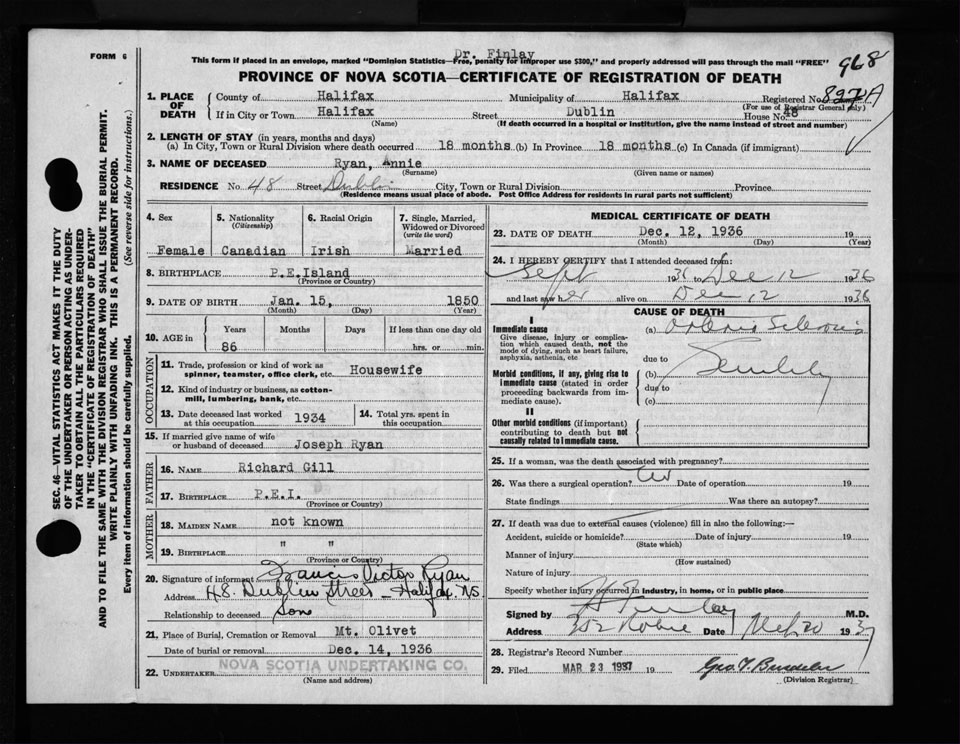 FORM 6
Dr. Finlay
This form if placed in an envelope, marked "Dominion Statistics—Free, penalty for improper use $300," and properly addressed will pass through the mail "FREE"
968
PROVINCE OF NOVA SCOTIA—CERTIFICATE OF REGISTRATION OF DEATH
SEC. 46—VITAL STATISTICS ACT MAKES IT THE DUTY
OF THE UNDERTAKER OR PERSON ACTING AS UNDER-
TAKER TO OBTAIN ALL THE PARTICULARS REQUIRED
IN THE "CERTIFICATE OF REGISTRATION OF DEATH"
AND TO FILE THE SAME WITH THE DIVISION REGISTRAR WHO SHALL ISSUE THE BURIAL PERMIT.
WRITE PLAINLY WITH UNFADING INK. THIS IS A PERMANENT RECORD.
Every item of information should be carefully supplied. (See reverse side for instructions.)
1. PLACE OF DEATH
County of Halifax Municipality of Halifax Registered No.
(For use of Registrar General only)
If in City or Town Halifax Street Dublin House No. 48
(Name) (If death occurred in a hospital or institution, give the name instead of street and number)
2. LENGTH OF STAY (in years, months and days)
(a) In City, Town or Rural Division where death occurred 18 months (b) In Province 18 months (c) In Canada (if immigrant)
3. NAME OF DECEASED Ryan, Annie
(Surname) (Given name or names)
RESIDENCE No 48 Street Dublin City, Town or Rural Division Province
(Residence means usual place of abode. Post Office Address for residents in rural parts not sufficient)
4. Sex 5. Nationality 6. Racial Origin 7. Single, Married,
(Citizenship) Widowed or Divorced
(write the word)
Female Canadian Irish Married
8. BIRTHPLACE P.E.Island
(Province or Country)
9. DATE OF BIRTH Jan. 15, 1850
(Month) (Day) (Year)
10. AGE in Years Months Days If less than one day old
86 hrs. or min.
OCCUPATION
11. Trade, profession or kind of work as
spinner, teamster, office clerk, etc. Housewife
12. Kind of industry or business, as cotton-
mill, lumbering, bank, etc.
13. Date deceased last worked
at this occupation 1934
14. Total yrs. spent in
this occupation
15. If married give name of wife
or husband of deceased Joseph Ryan
FATHER
16. NAME Richard Gill
17. BIRTHPLACE P.E.I.
(Province or Country)
MOTHER
18. MAIDEN NAME not known
19. BIRTHPLACE " "
(Province or Country)
20. Signature of informant Francis Victor Ryan
Address 48. Dublin Street - Halifax. N.S
Relationship to deceased Son
21. Place of Burial, Cremation or Removal Mt. Olivet
Date of burial or removal Dec. 14, 1936
22. UNDERTAKER NOVA SCOTIA UNDERTAKING CO.
(Name and address)
MEDICAL CERTIFICATE OF DEATH
23. DATE OF DEATH Dec. 12, 1936 19
(Month) (Day) (Year)
24. I HEREBY CERTIFY that I attended deceased from:
Sept 1936 to Dec 12 1936
and last saw her alive on Dec 12 1936
CAUSE OF DEATH
I
Immediate cause (a) Arterio Sclerosis
Give disease, injury or complica-
tion which caused death, not the
mode of dying, such as heart failure,
asphyxia, asthenia, etc.
due to
Morbid conditions, if any, giving rise to
immediate cause (stated in order
proceeding backwards from im-
mediate cause).
(b) Senility
due to
(c)
II
Other morbid conditions (if important)
contributing to death but not
causally related to immediate cause.
25. If a woman, was the death associated with pregnancy?
26. Was there a surgical operation? Date of operation 19
State findings Was there an autopsy?
27. If death was due to external causes (violence) fill in also the following:—
Accident, suicide or homicide? Date of injury 19
(State which)
Manner of injury
(How sustained)
Nature of injury
Specify whether injury occurred in industry, in home, or in public place
Signed by Finlay M.D.
Address 352 Robie Date 1937
28. Registrar's Record Number
29. Filed MAR 23 1937 19
(Division Registrar)